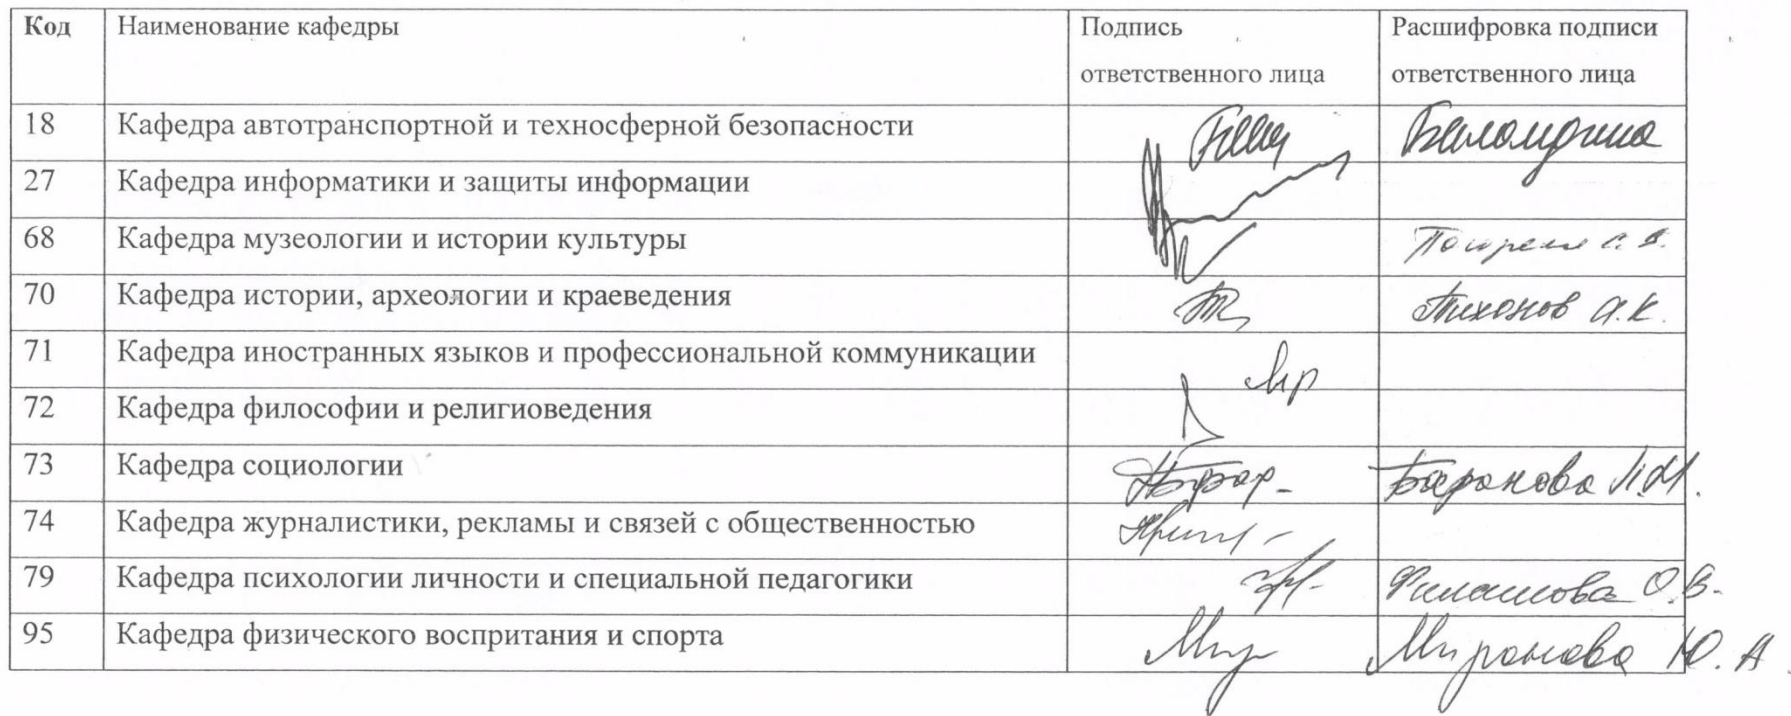 Код Наименование кафедры Подпись ответственного лица Расшифровка подписи ответственного лица
18 Кафедра автотранспортной и техносферной безопасности
27 Кафедра информатики и защиты информации
68 Кафедра музеологии и истории культуры
70 Кафедра истории, археологии и краеведения Тихонов А.К.
71 Кафедра иностранных языков и профессиональной коммуникации
72 Кафедра философии и религиоведения
73 Кафедра социологии Баранова
74 Кафедра журналистики, рекламы и связей с общественностью
79 Кафедра психологии личности и специальной педагогики Филатова О.В.
95 Кафедра физического воспритания и спорта Миронова Ю.А.